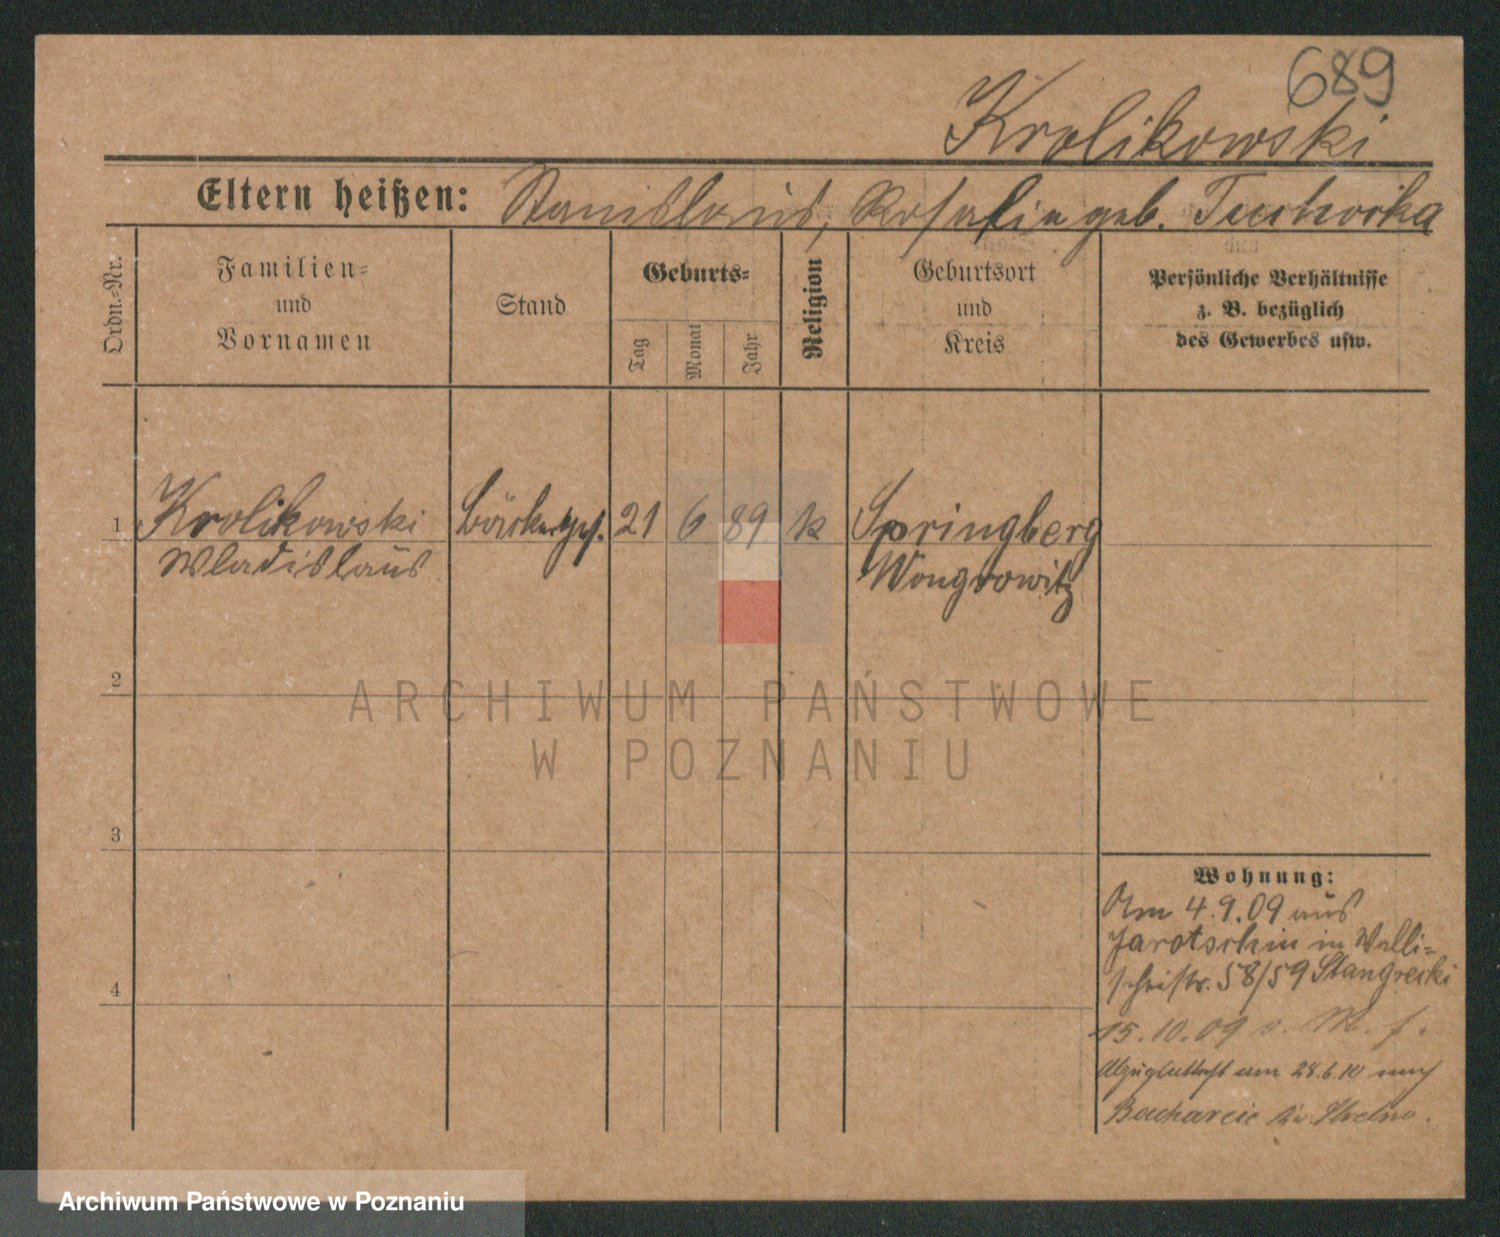 689
Krolikowski
Eltern heißen: Stanislaus, Rosalie geb.
Ordn.-Nr.
Familien-
und
Vornamen
Stand
Geburts-
Tag
Monat
Jahr
Religion
Geburtsort
und
Kreis
Persönliche Verhältnisse
z. B. bezüglich
des Gewerbes usw.
1 Krolikowski Bäckerges. 21 6 89 k Springberg
Wladislaus Wongrowitz
2
ARCHIWUM PAŃSTWOWE
W POZNANIU
3
Wohnung:
Am 4.9.09 aus
Jarotschin in Walli-
scheistr. 58/59
4
15.10.09 v.
am 28.6.10 nach
Archiwum Państwowe w Poznaniu